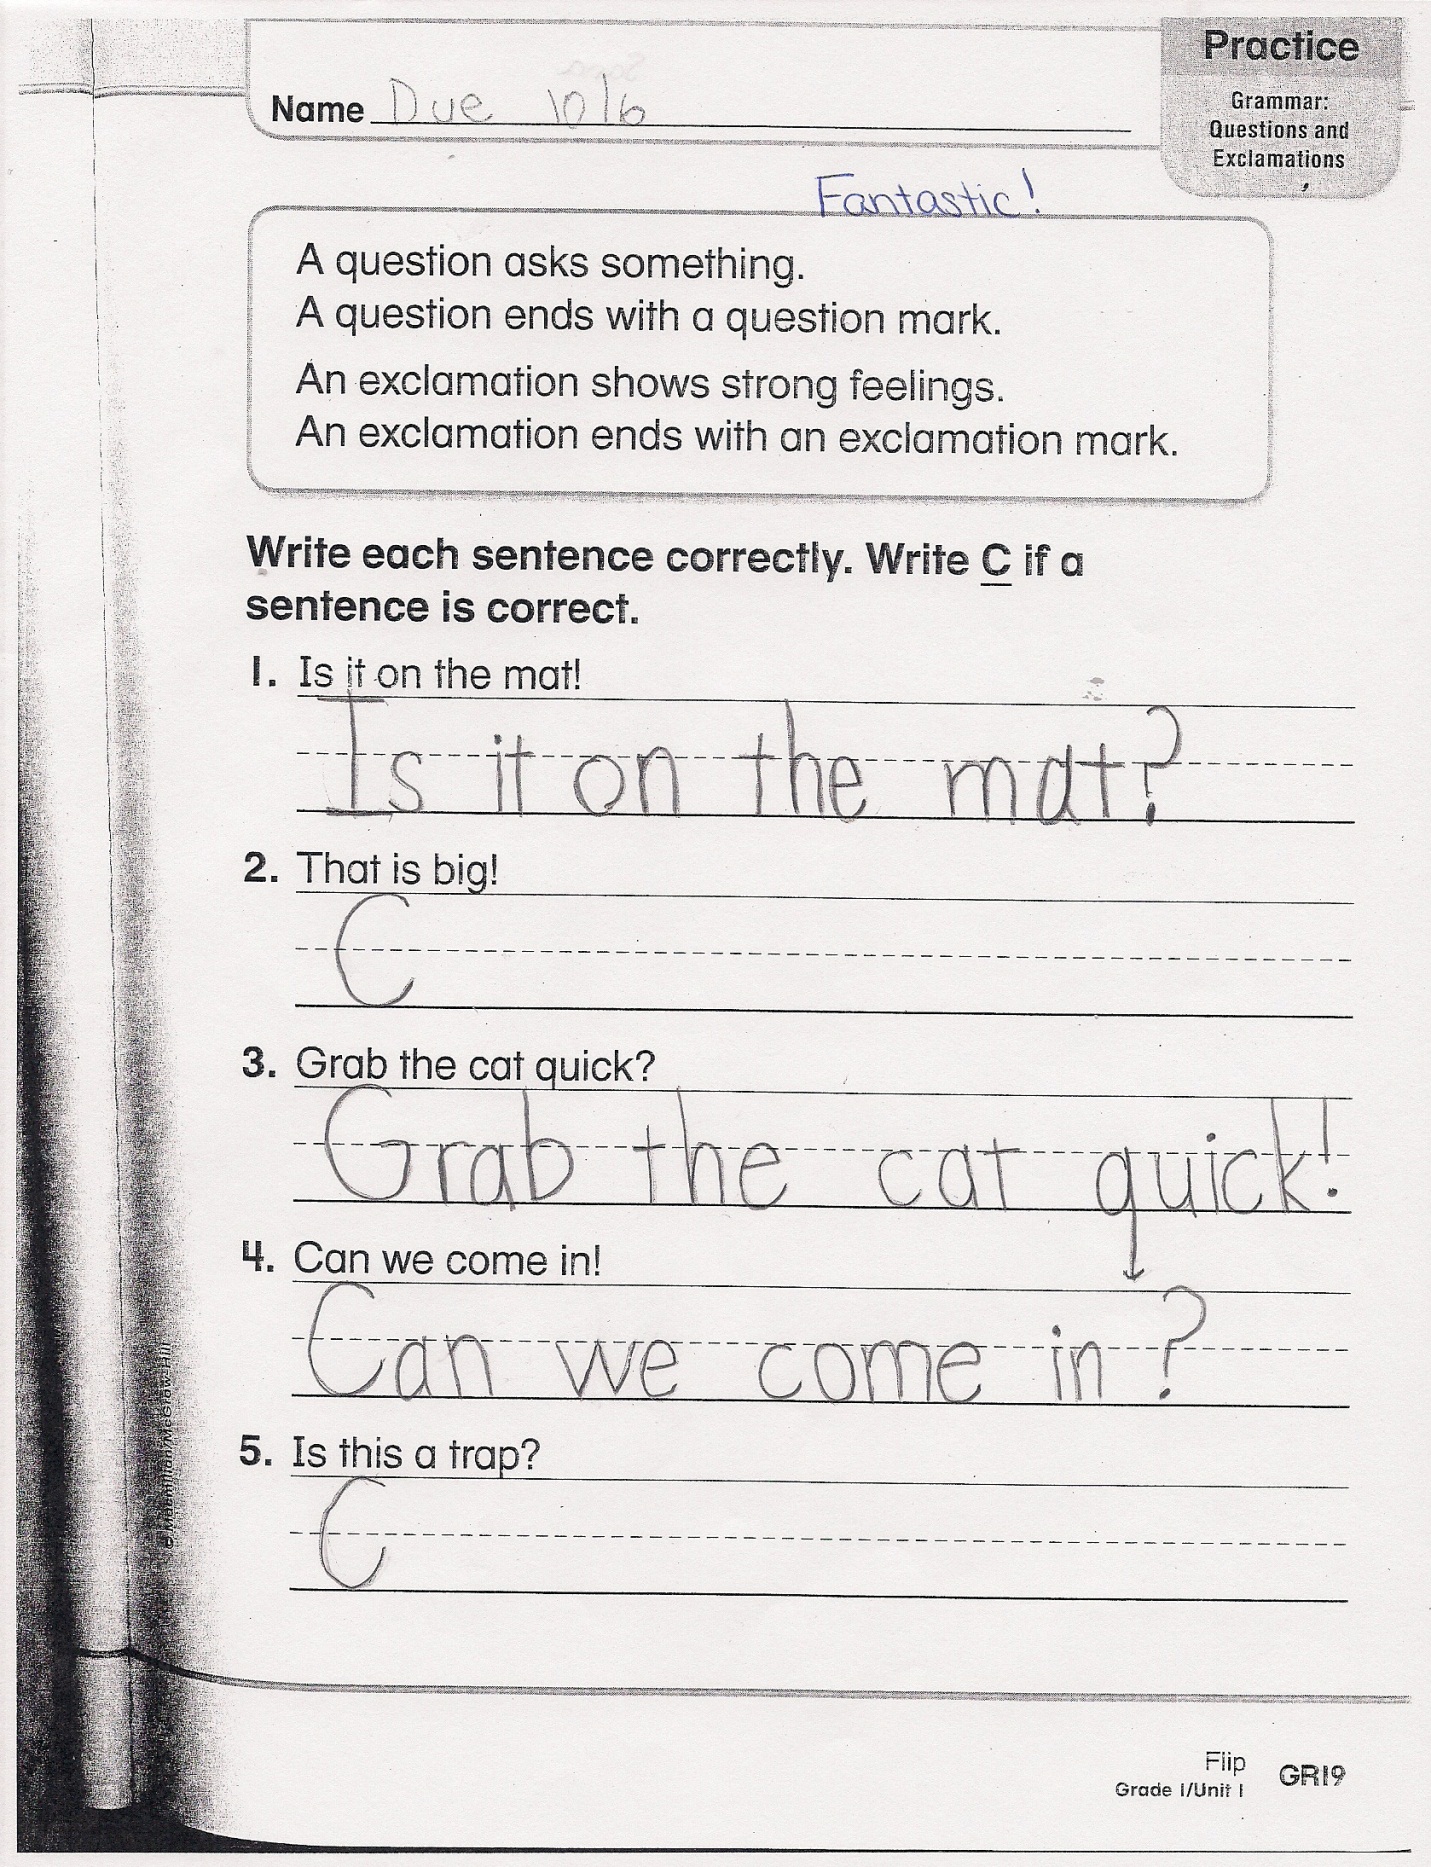 Practice
Grammar:
Questions and
Exclamations
Name Due 10/6
Fantastic!
A question asks something.
A question ends with a question mark.
An exclamation shows strong feelings.
An exclamation ends with an exclamation mark.
Write each sentence correctly. Write C if a
sentence is correct.
1. Is it on the mat!
Is it on the mat?
2. That is big!
C
3. Grab the cat quick?
Grab the cat quick!
4. Can we come in!
Can we come in?
5. Is this a trap?
C
© Macmillan/McGraw-Hill
Flip
Grade 1/Unit 1
GR19